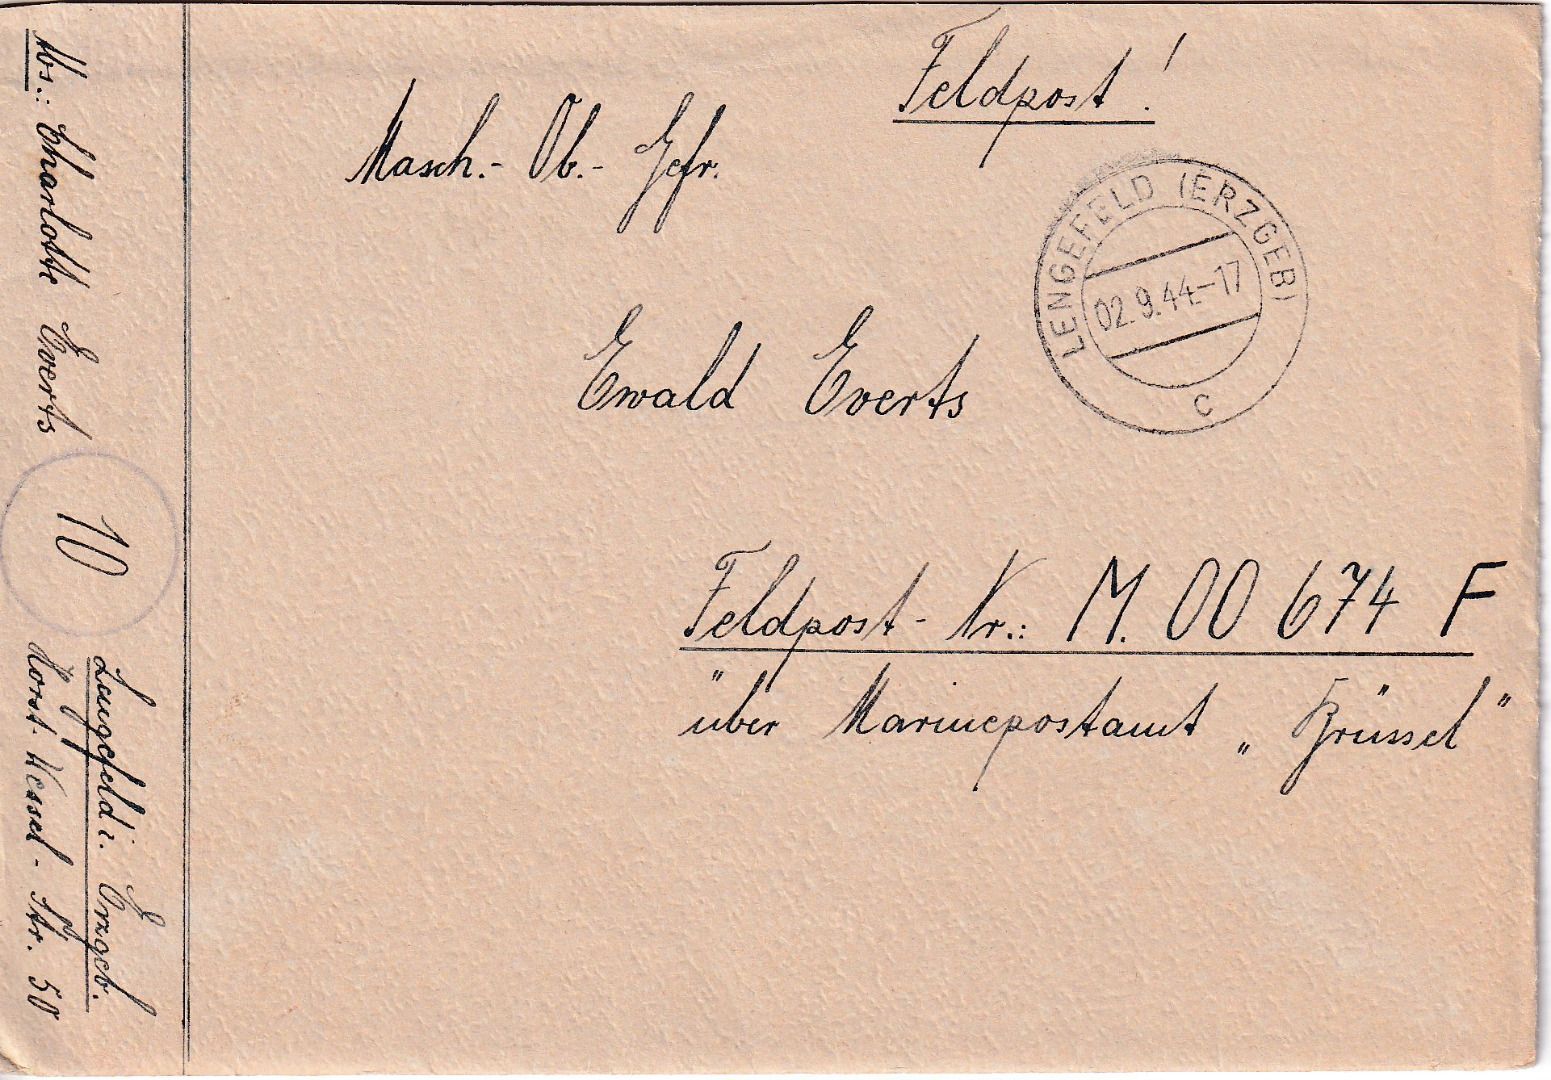 Feldpost!
Masch.-Ob.-Gefr.
LENGEFELD (ERZGEB)
02.9.44.-17
c
Ewald Everts
Feldpost-Nr.: M. 00 674 F
über Marinepostamt „Brüssel"
Abs.: Charlotte Everts
10
Lengefeld i. Erzgeb.
Horst-Wessel-Str. 50